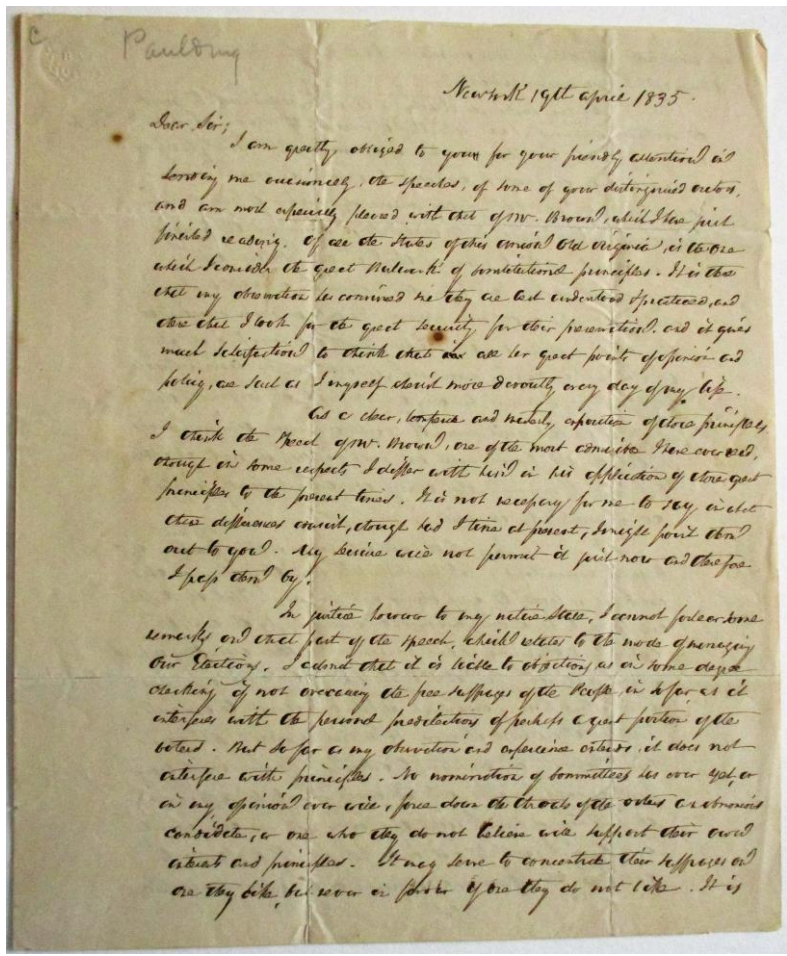 C
Paulding
New York 19th april 1835.
Dear Sir;
I am greatly obliged to you for your friendly attention in
sending me occasionally, the speeches, of some of your distinguished orators,
and am most especially pleased with that of Mr. Brown, which I have just
finished reading. Of all the States of this union Old Virginia, is the one
which I consider the great Bulwark of constitutional principles. It is there
that my observation has convinced me they are best understood & practiced, and
there that I look for the great security for their preservation. and it gives
much satisfaction to think that all her great points of opinion and
policy, are such as I myself cherish more devoutly every day of my life.
As a clear, and exposition of those principles
I think the Speech of Mr. Brown, one of the most I have ever read,
though in some respects I differ with him in his application of those great
principles to the present times. It is not necessary for me to say in what
these differences consist, though had I time at present, I might point them
out to you. My leisure will not permit it just now and therefore
I pass them by.
In justice however to my native State, I cannot forbear some
remarks on that part of the speech, which relates to the mode of managing
Our Elections. I admit that it is liable to objections as in some degree
checking if not the free suffrages of the People, in so far as it
interferes with the personal predilections of perhaps a great portion of the
voters. But so far as my observation and experience extends, it does not
interfere with principles. No nomination of Committees has ever yet, or
in my opinion ever will, force down the throats of the voters an obnoxious
candidate, or one who they do not believe will support their own
interests and principles. It may serve to concentrate their suffrages on
one they like, but never in favor of one they do not like. It is